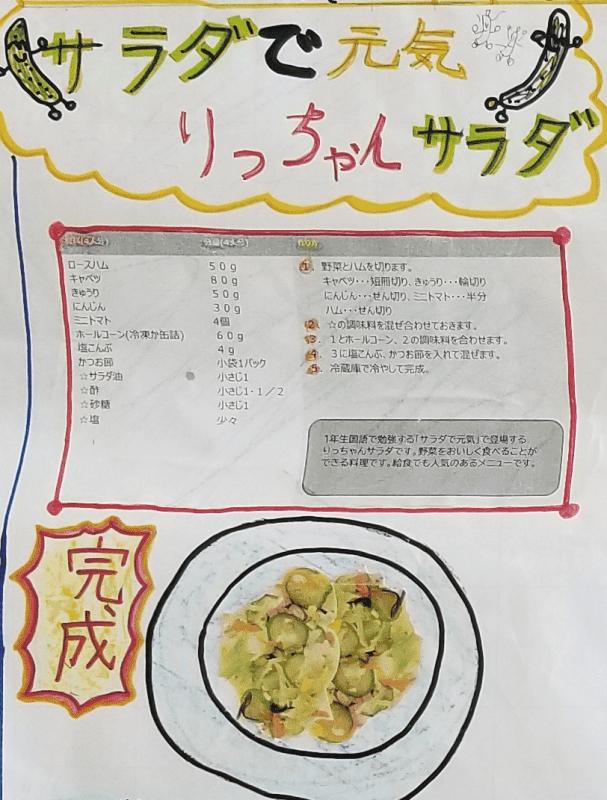 サラダで元気
りっちゃんサラダ
材料(4人分) 分量(4人分) 作り方
ロースハム 50g
キャベツ 80g
きゅうり 50g
にんじん 30g
ミニトマト 4個
ホールコーン(冷凍か缶詰) 60g
塩こんぶ 4g
かつお節 小袋1パック
☆サラダ油 小さじ1
☆酢 小さじ1・1/2
☆砂糖 小さじ1
☆塩 少々
1. 野菜とハムを切ります。
キャベツ・・・短冊切り、きゅうり・・・輪切り
にんじん・・・せん切り、ミニトマト・・・半分
ハム・・・せん切り
2. ☆の調味料を混ぜ合わせておきます。
3. 1とホールコーン、2の調味料を合わせます。
4. 3に塩こんぶ、かつお節を入れて混ぜます。
5. 冷蔵庫で冷やして完成。
1年生国語で勉強する「サラダで元気」で登場する
りっちゃんサラダです。野菜をおいしく食べることが
できる料理です。給食でも人気のあるメニューです。
完成